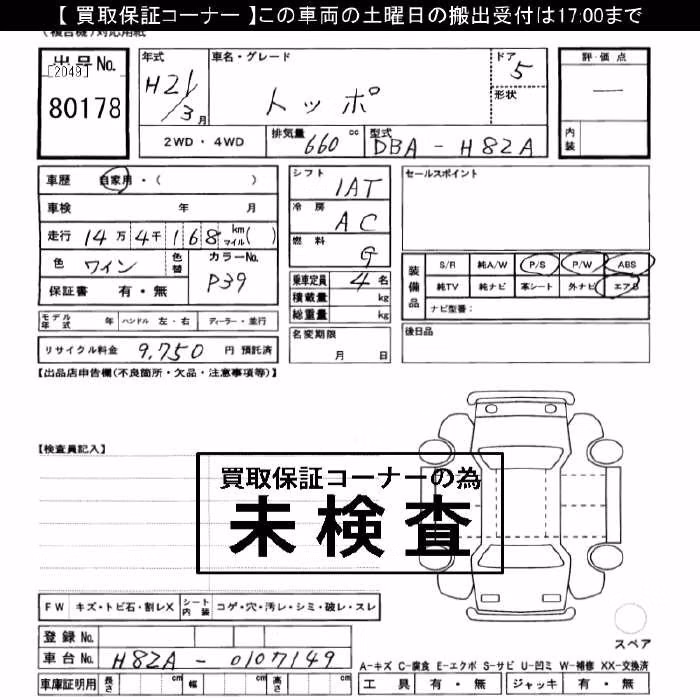 【 買取保証コーナー 】この車両の土曜日の搬出受付は17:00まで
(複合機)対応用紙
出品No.
[2049]
80178
年式
H21/3月
車名・グレード
トッポ
ドア
5
形状
評価点
—
内装
2WD・4WD
排気量 660 cc
型式 DBA-H82A
車歴 自家用・( )
車検 年 月
走行 14万4千168 km マイル( )
色 ワイン
色替
カラーNo. P39
保証書 有・無
モデル年式 年 ハンドル 左・右 ディーラー・並行
リサイクル料金 9,750 円 預託済
シフト IAT
冷房 AC
燃料 G
乗車定員 4 名
積載量 kg
総重量 kg
名変期限
月 日
セールスポイント
装備品
S/R 純A/W P/S P/W ABS
純TV 純ナビ 革シート 外ナビ エアB
ナビ型番:
後日品
【出品店申告欄(不良箇所・欠品・注意事項等)】
【検査員記入】
買取保証コーナーの為
未検査
FW キズ・トビ石・割レX
シート内装 コゲ・穴・汚レ・シミ・破レ・スレ
登録No.
車台No. H82A-0107149
車庫証明用 長さ cm 幅 cm 高さ cm
スペア
A-キズ C-腐食 E-エクボ S-サビ U-凹ミ W-補修 XX-交換済
工具 有・無 ジャッキ 有・無